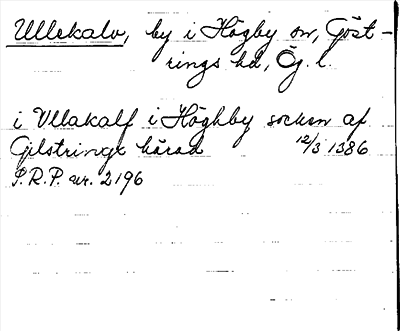 Ullekalv, by i Högby sn, Göst-
rings hd, Ög. l.
i Vllakalf i Höghby socken af
Gilstringe härad 12/3 1386
S.R.P. nr. 2196